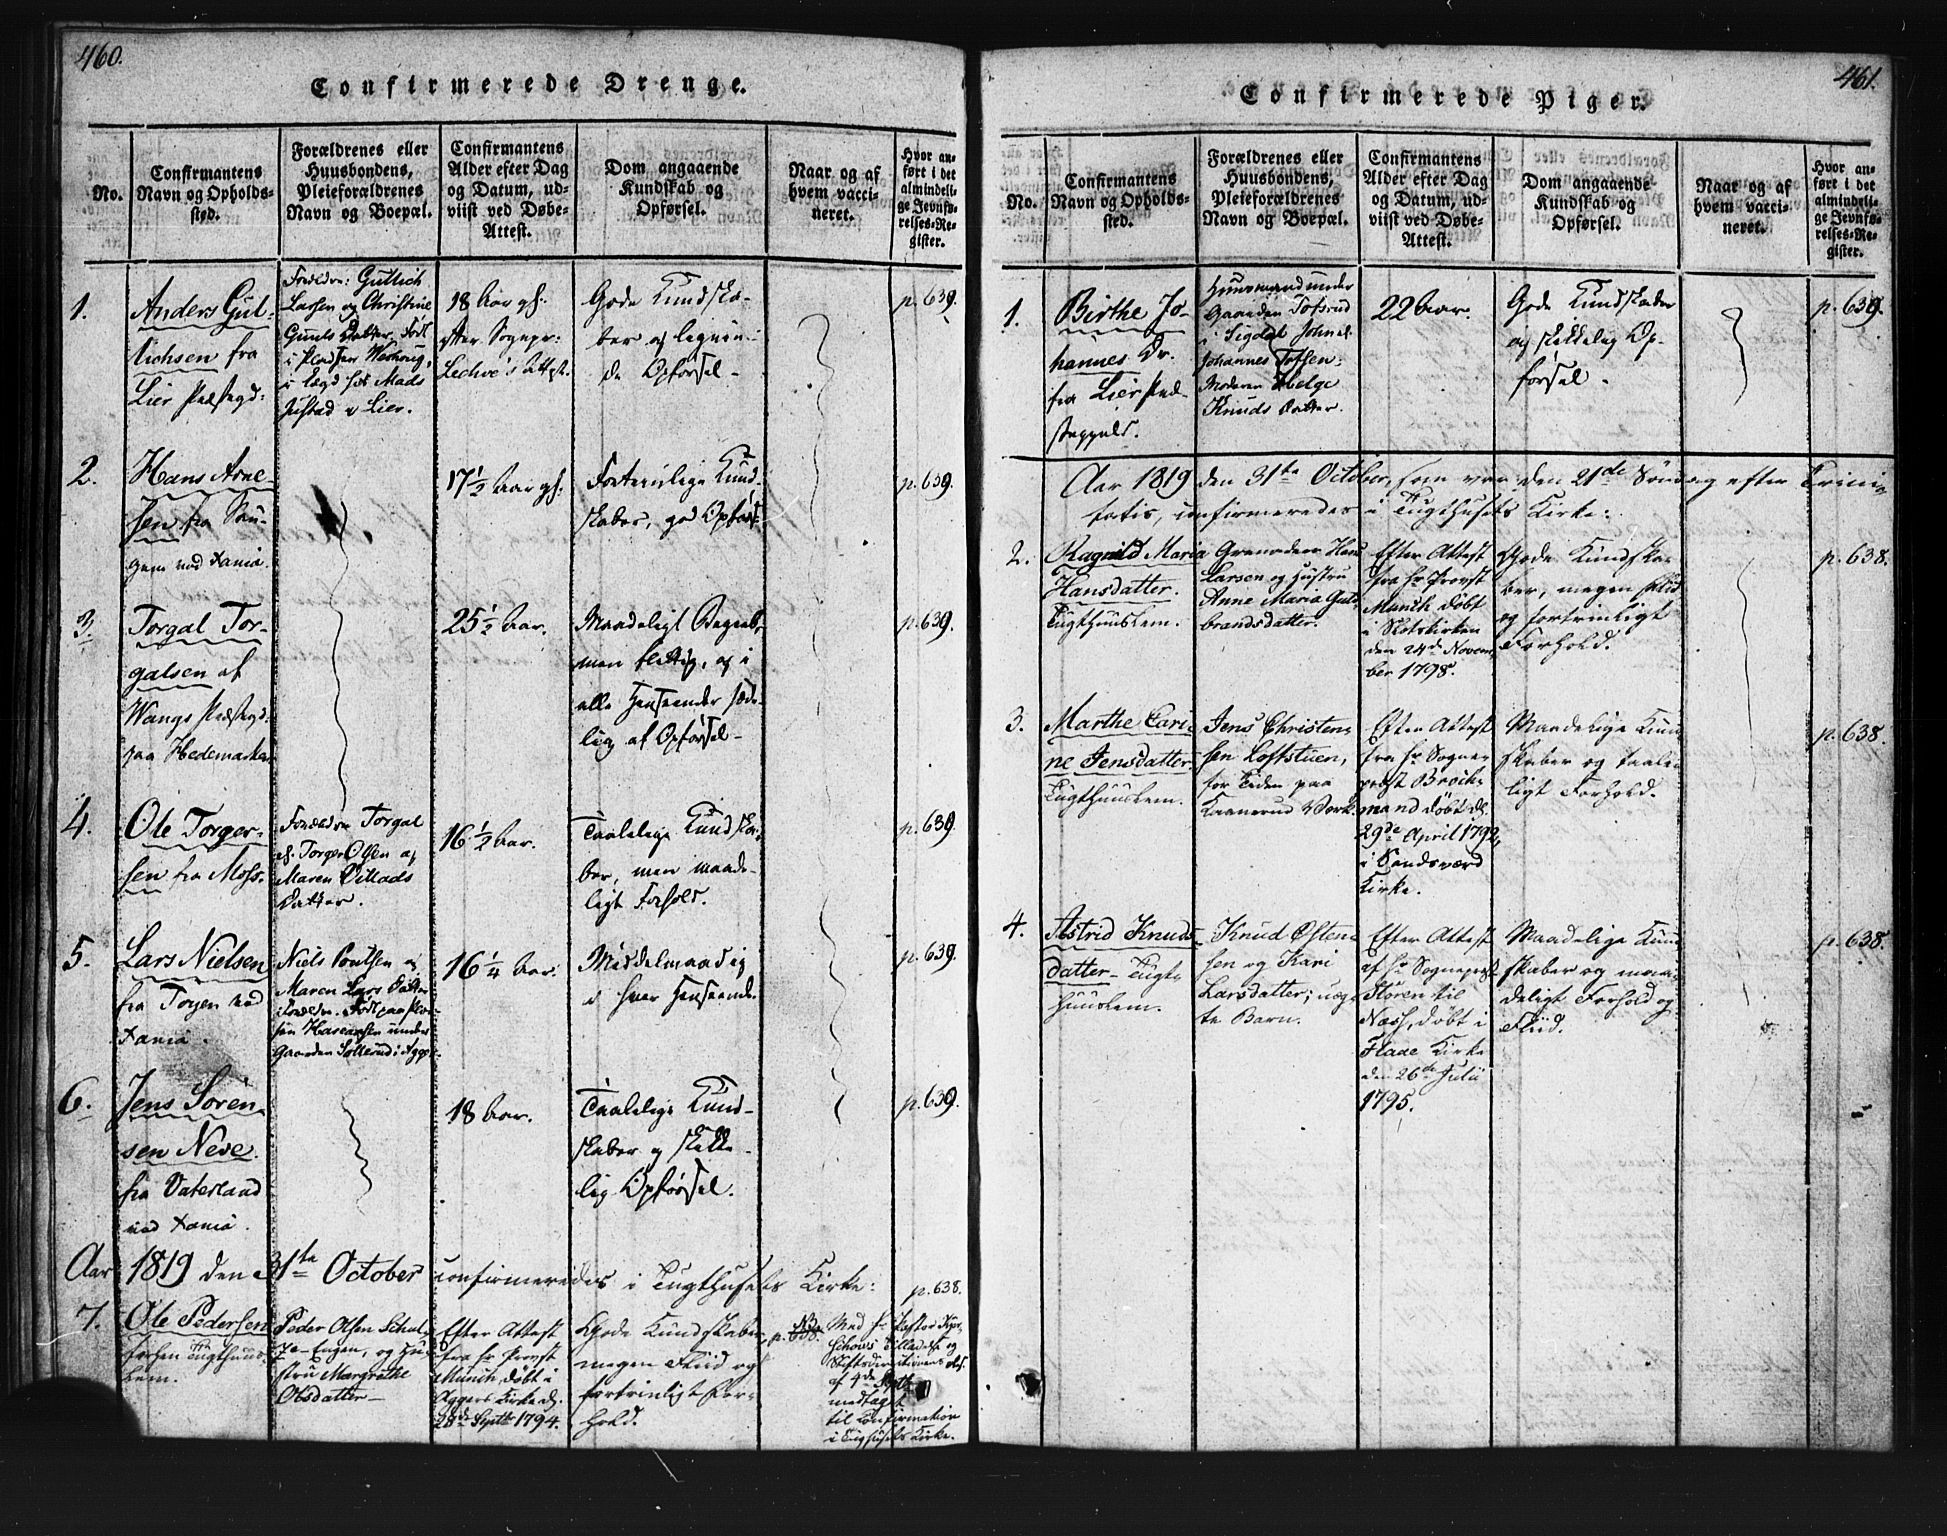 460.
Confirmerede Drenge.
No.
Confirmantens
Navn og Opholds-
sted.
Forældrenes eller
Huusbondens,
Pleieforældrenes
Navn og Boepæl.
Confirmantens
Alder efter Dag
og Datum, ud-
viist ved Døbe-
Attest.
Dom angaaende
Kundskab og
Opførsel.
Naar og af
hvem vacci-
neret.
Hvor an-
ført i det
almindeli-
ge Jevnfø-
relses-Re-
gister.
1.
Anders Gul-
lichsen fra
Lier Præstegd:
Forældre: Gullich
Larsen og Christine
Gunls Datter, Født
i Pladsen
i Lægd hos Mads
Justad i Lier.
18 Aar gl:
efter Sognepr:
Attest.
Gode Kundska-
ber og
de Opførsel -
p. 639.
2.
Hans Arne-
sen fra Sou-
gem ved Xania
17 1/2 Aar gl:
Fortrinlige Kund-
skaber, god Opførsel
p. 639.
3.
Torgal Tor-
galsen af
Wangs Præstegd:
paa Hedemarken
25 1/2 Aar.
Maadeligt Begreb,
men flittig, og i
alle Henseender sæde-
lig af Opførsel -
p. 639.
4.
Ole Torger-
sen fra Moss.
Forældre Torgal
el. Torger Olsen og
Maren Villads
Datter.
16 1/2 Aar.
Taalelige Kundska-
ber, men maade-
ligt Forhold.
p. 639.
5.
Lars Nielsen
fra Toyen ved
Xania.
Niels Poulsen og
Maren Lars Datter
Forældre. Født paa Plad-
sen under
Gaarden Sollerud i Agger
16 1/4 Aar.
Middelmaadig
i hver Henseende.
p. 639.
6.
Jens Søren-
sen Neve
fra Vaterland
ved Xania.
18 Aar.
Taalelige Kund-
skaber og skikke-
lig Opførsel.
p. 639.
Aar 1819 den 31te October confirmeredes i Tugthusets Kirke:
p. 638.
7.
Ole Pedersen
Tugthuus-
lem.
Peder Olsen
Engen, og Hu-
stru Margrethe
Olsdatter -
Efter Attest
fra Hr Provst
Munch, døbt i
Aggers Kirke d.
28de Septbr 1794.
Gode Kundskaber,
megen Fliid og
fortrinligt For-
hold.
NB
p. 638.
Med Hr Pastor
Tilladelse og
Stiftsdirectionens
af 4de Septbr
modtaget
til Confirmation
i Tugthusets Kirke.
461.
Confirmerede Piger.
No.
Confirmantens
Navn og Opholds-
sted.
Forældrenes eller
Huusbondens,
Pleieforældrenes
Navn og Boepæl.
Confirmantens
Alder efter Dag
og Datum, ud-
viist ved Døbe-
Attest.
Dom angaaende
Kundskab og
Opførsel.
Naar og af
hvem vacci-
neret.
Hvor an-
ført i det
almindeli-
ge Jevnfø-
relses-Re-
gister.
1.
Birthe Jo-
hannes Dr.
fra Lier Præ-
stegjeld.
Huusmand under
Gaarden Tofsrud
i Sigdal
Johannes Tofsen;
Moderen Helge
Knuds Datter.
22 Aar.
Gode Kundskaber
og skikkelig Op-
førsel.
p. 639.
Aar 1819 den 31te October, som var den 21de Søndag efter Trini-
tatis, confirmeredes i Tugthusets Kirke:
2.
Ragnild Maria
Hansdatter.
Tugthuuslem.
Grenadeer Hans
Larsen og Hustru
Anne Maria Gul-
brandsdatter.
Efter Attest
fra Hr Provst
Munch døbt
i Slotskirken
den 24de Novem-
ber 1798.
Gode Kundska-
ber, megen Fliid
og fortrinligt
Forhold.
p. 638.
3.
Marthe Cari-
ne Jensdatter.
Tugthuuslem.
Jens Christen-
sen Loftstuen,
for Tiden paa
Værk.
Efter Attest
fra Hr Sogne-
præst Brock-
mand døbt d.
29de April 1792,
i Sandsværd
Kirke.
Maadelige Kund-
skaber og taale-
ligt Forhold.
p. 638.
4.
Astrid Knuds-
datter - Tugt-
huuslem.
Knud Østen-
sen og Kari
Larsdatter; uæg-
te Barn.
Efter Attest
af Hr Sognepræst
Støren til
Næss, døbt i
Flaae Kirke
den 26de Julii
1795.
Maadelige Kund-
skaber og maa-
deligt Forhold og
Fliid.
p. 638.